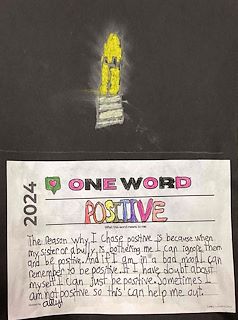 2024
ONE WORD
POSITIVE
What this word means to me:
The reason why I chose positive is because when
my sister or a bully is bothering me I can ignore them
and be positive. And if I am in a bad mood I can
remember to be positive. If I have doubt about
myself I can just be positive. Sometimes I
am not positive so this can help me out.